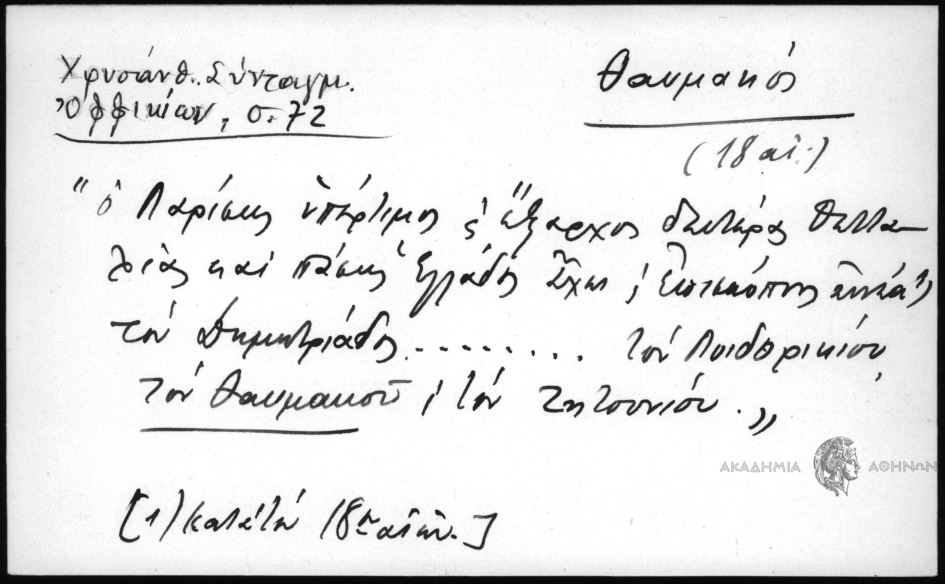 Χρυσάνθ. Σύνταγμ.
Ὀφφικίων, σ. 72
Θαυμακός
(18 αἰ.)
"ὁ Λαρίσης ὑπέρτιμος ἔξαρχος δευτέρας Θεττα-
λίας καὶ πάσης Ἑλλάδος ἔχει ἐπισκόπους ἐννέα
τὸν Δημητριάδος......... τὸν Λοιδορικίου,
τὸν Θαυμακοῦ, τὸν Ζητουνίου.,,
ΑΚΑΔΗΜΙΑ ΑΘΗΝΩΝ
[1) κατὰ τὸν 18ον αἰῶν.]